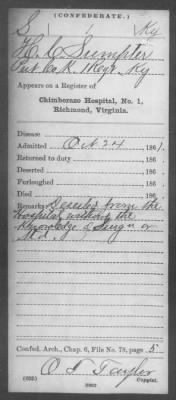 (CONFEDERATE.)
S 1 Ky
H. C. Sumpter
Pvt Co. K. 1 Regt. Ky
Appears on a Register of
Chimborazo Hospital, No. 1,
Richmond, Virginia.
Disease
Admitted Oct 24 , 1861.
Returned to duty , 186 .
Deserted , 186 .
Furloughed , 186 .
Died , 186 .
Remarks: Deserted from the
hospital without the
knowledge of Surg or
Confed. Arch., Chap. 6, File No. 78, page 5
(635)
Copyist.